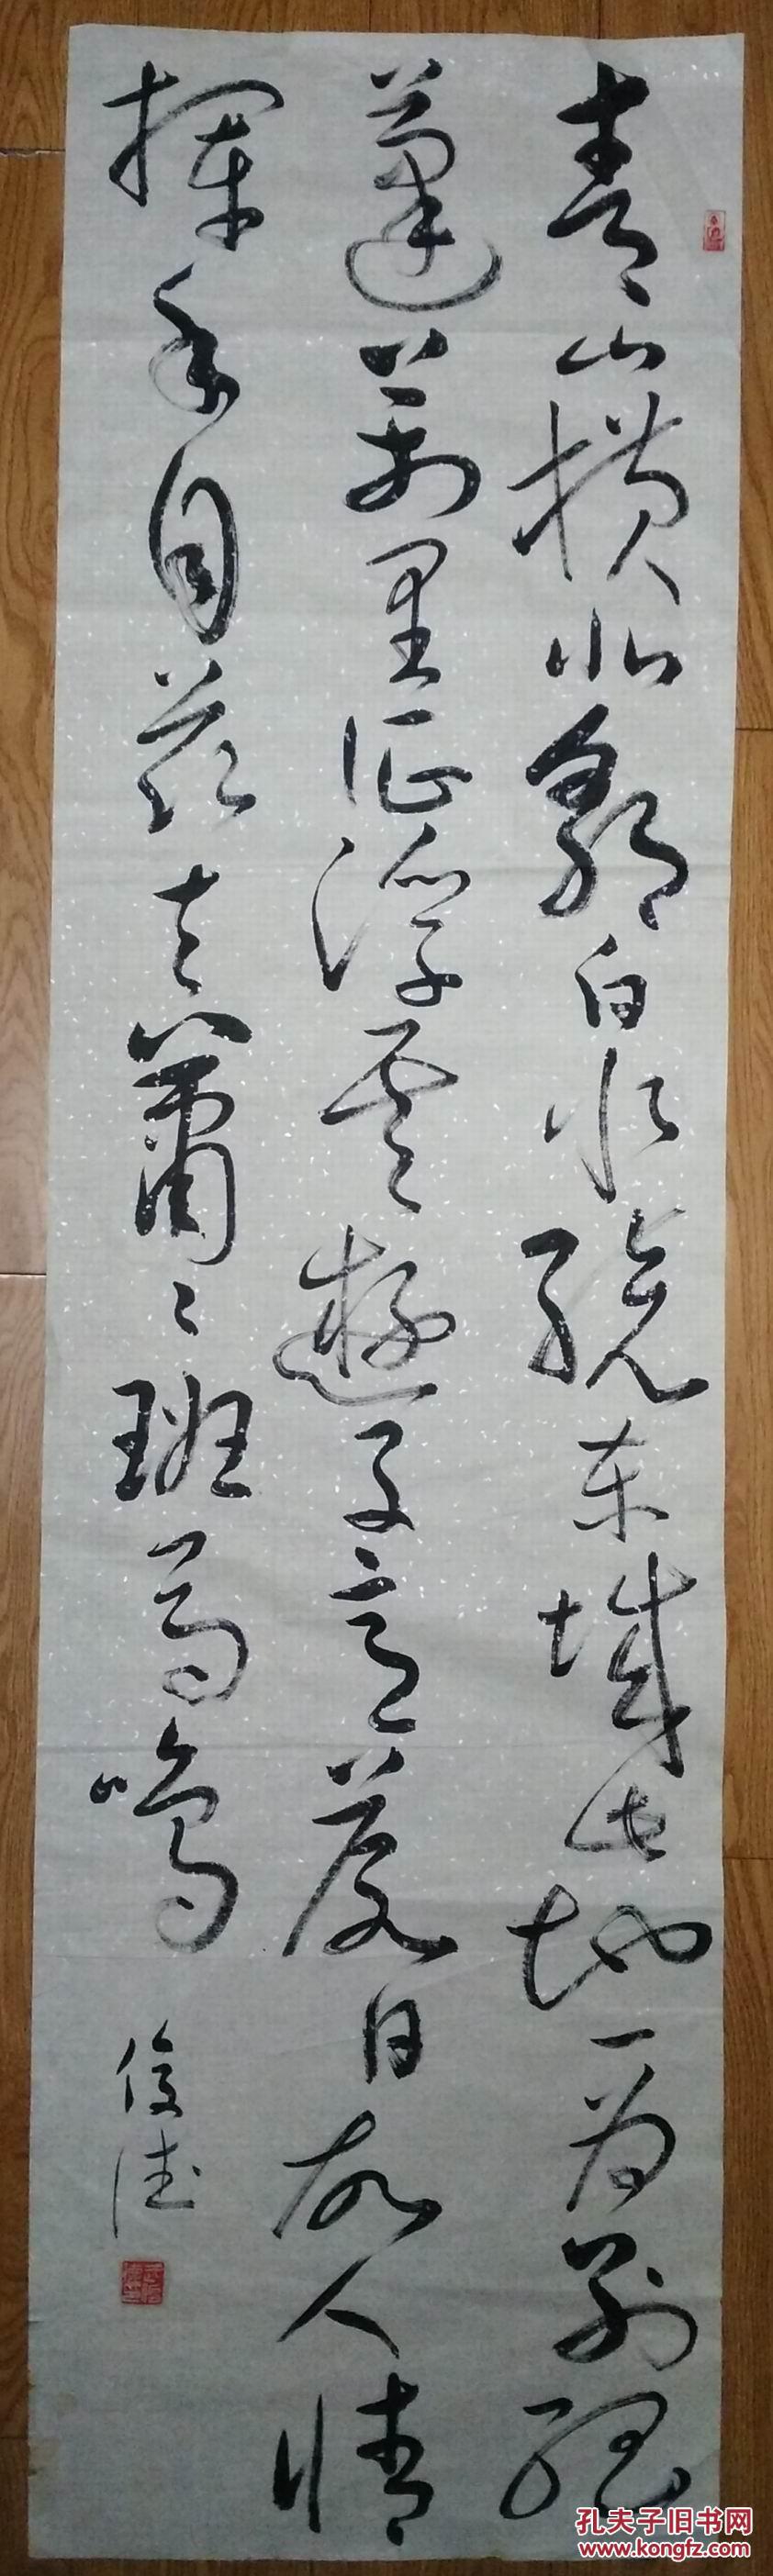 青山横北郭白水绕东城此地一为别孤
蓬万里征浮云遊子意落日故人情
挥手自兹去萧々班马鸣
俊德
孔夫子旧书网
www.kongfz.com